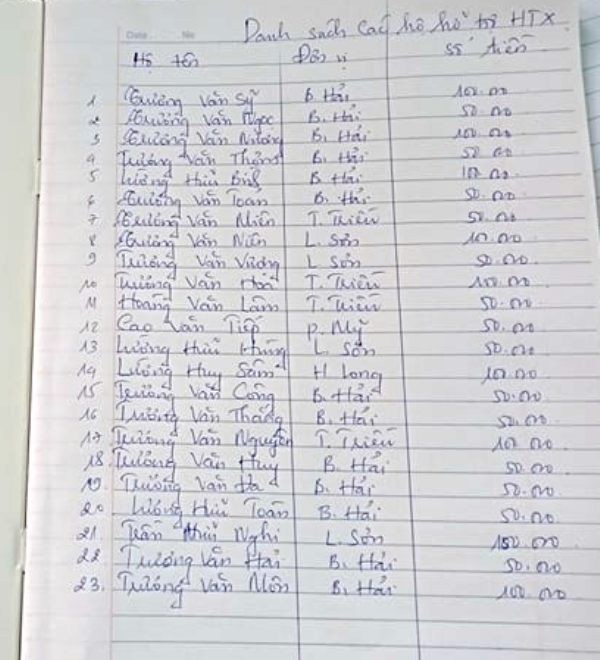 Date No
Danh sách các hộ hỗ trợ HTX
Họ tên Đơn vị số tiền
1 Trương Văn Sỹ B. Hải 100.000
2 Trương Văn Ngọc B. Hải 50.000
3 Trương Văn Nương B. Hải 100.000
4 Trương Văn Thắng B. Hải 50.000
5 Lương Hữu Bình B. Hải 100.000
6 Trương Văn Toàn B. Hải 50.000
7 Trương Văn Miên T. Triều 50.000
8 Trương Văn Niên L. Sơn 100.000
9 Trương Văn Vương L Sơn 50.000
10 Trương Văn Hoà T. Triều 100.000
11 Hoàng Văn Lâm T. Triều 50.000
12 Cao Văn Tiếp P. Mỹ 50.000
13 Lương Hữu Hùng L. Sơn 50.000
14 Lương Huy Sâm H Long 100.000
15 Trương Văn Công B. Hải 50.000
16 Trương Văn Thắng B. Hải 50.000
17 Trương Văn Nguyên T. Triều 100.000
18. Trương Văn Huy B. Hải 50.000
19. Trương Văn Đa B. Hải 50.000
20 Lương Hữu Toán B. Hải 50.000
21. Trần Hữu Nghi L. Sơn 150.000
22 Trương Văn Hải B. Hải 50.000
23. Trương Văn Môn B. Hải 100.000